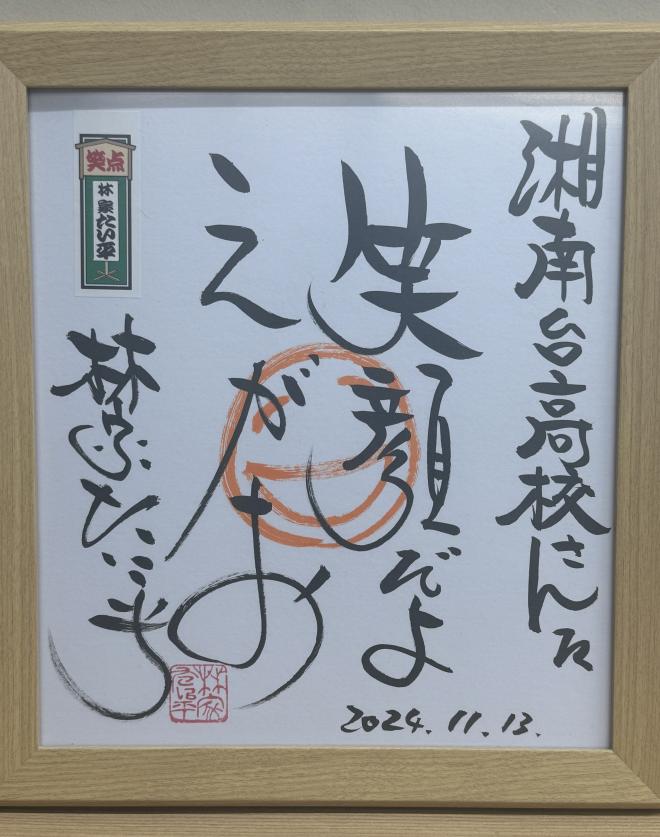 湘南台高校さん江
笑顔だよ
えがお
笑点
林家たい平
林家たい平
林家
たい平
2024.11.13.